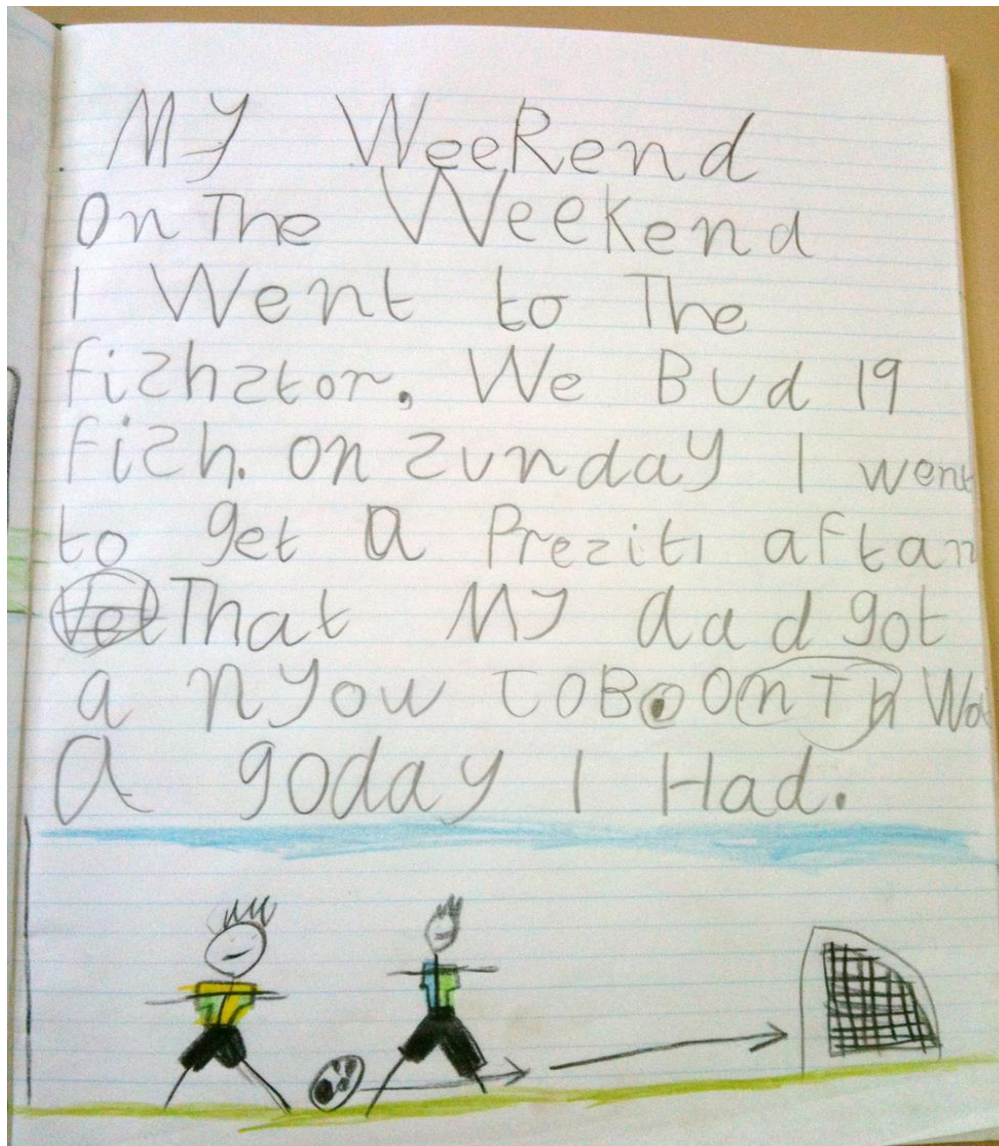 My WeeRend
On The Weekend
I Went to The
fizhztor, We Bud 19
fizh. on zunday I went
to get a Preziti aftan
That My dad got
a nyow toB
A goday I Had.